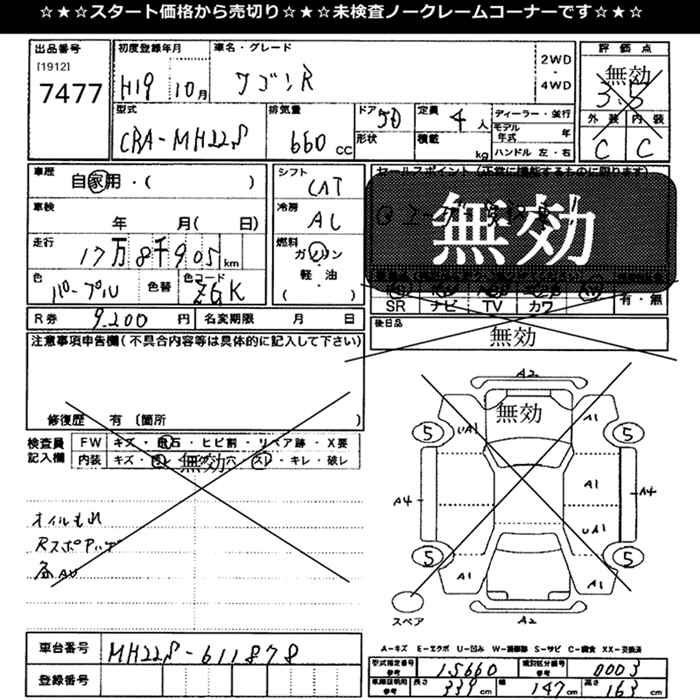 ☆★☆★スタート価格から売切り☆★☆★未検査ノークレームコーナーです☆★☆
出品番号
[1912]
7477
初度登録年月
H19 10月
車名・グレード
ワゴンR
2WD
・
4WD
評価点
無効
3.5
外装 内装
C C
型式
CBA-MH22S
排気量
660 cc
ドア 5D
形状
定員 4 人
積載 kg
ディーラー・並行
モデル年式 年
ハンドル 左・右
車歴
自家用・( )
車検
年 月( 日)
走行
17万8千905 km
色
パープル
色替
色コード
ZGK
シフト
CAT
冷房
AC
燃料
ガソリン
・
軽・油
( )
セールスポイント(正常に機能するものに限ります)
無効
SR ナビ TV カワ
有・無
R券 9,200 円
名変期限 月 日
後日品
無効
注意事項申告欄(不具合内容等は具体的に記入して下さい)
修復歴 有〔箇所 〕
検査員
記入欄
FW キズ・飛石・ヒビ割・リペア跡・X要
内装 キズ・・穴・スレ・キレ・破レ
無効
オイルもれ
RスポアップA
無効
A2
5 UA1 A1 5
A4 A1 A4
UA1
5 A1 A1 5
スペア
A2
A-キズ E-エクボ U-凹み W-補修跡 S-サビ C-腐食 XX-交換済
車台番号 MH22S-611878
登録番号
型式指定番号
参考
15660
類別区分番号
参考
0003
車輌説明用
参考
長さ 339 cm 幅 147 cm 高さ 163 cm